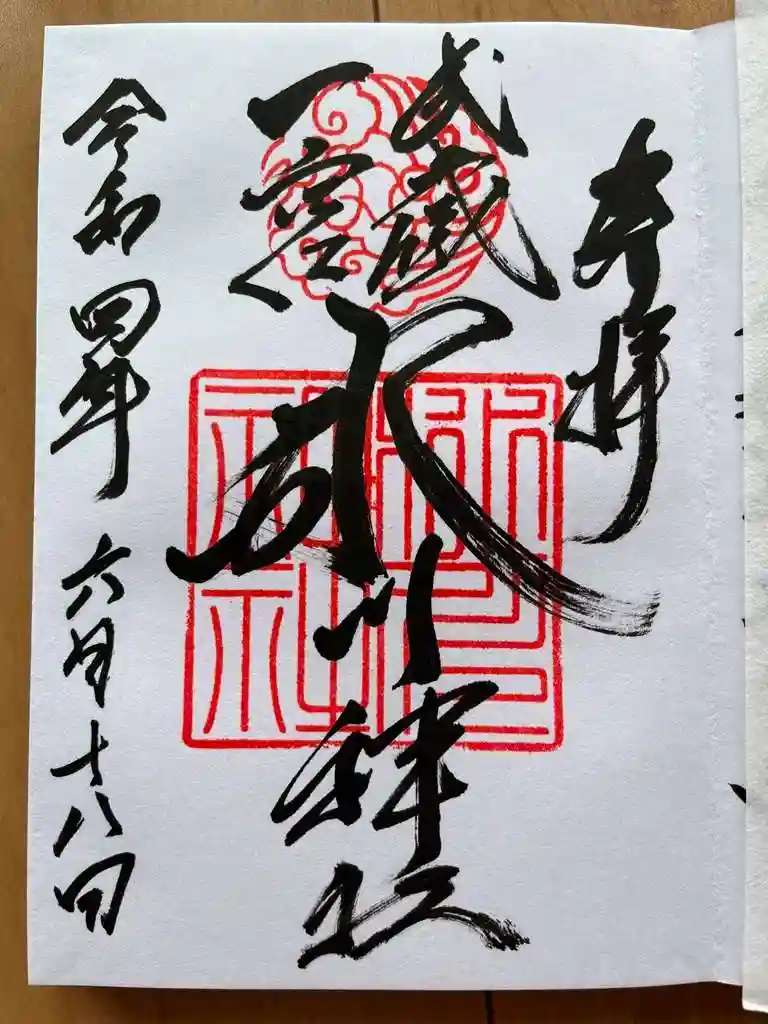 奉拝
武蔵
一宮
氷川神社
令和四年六月十八日